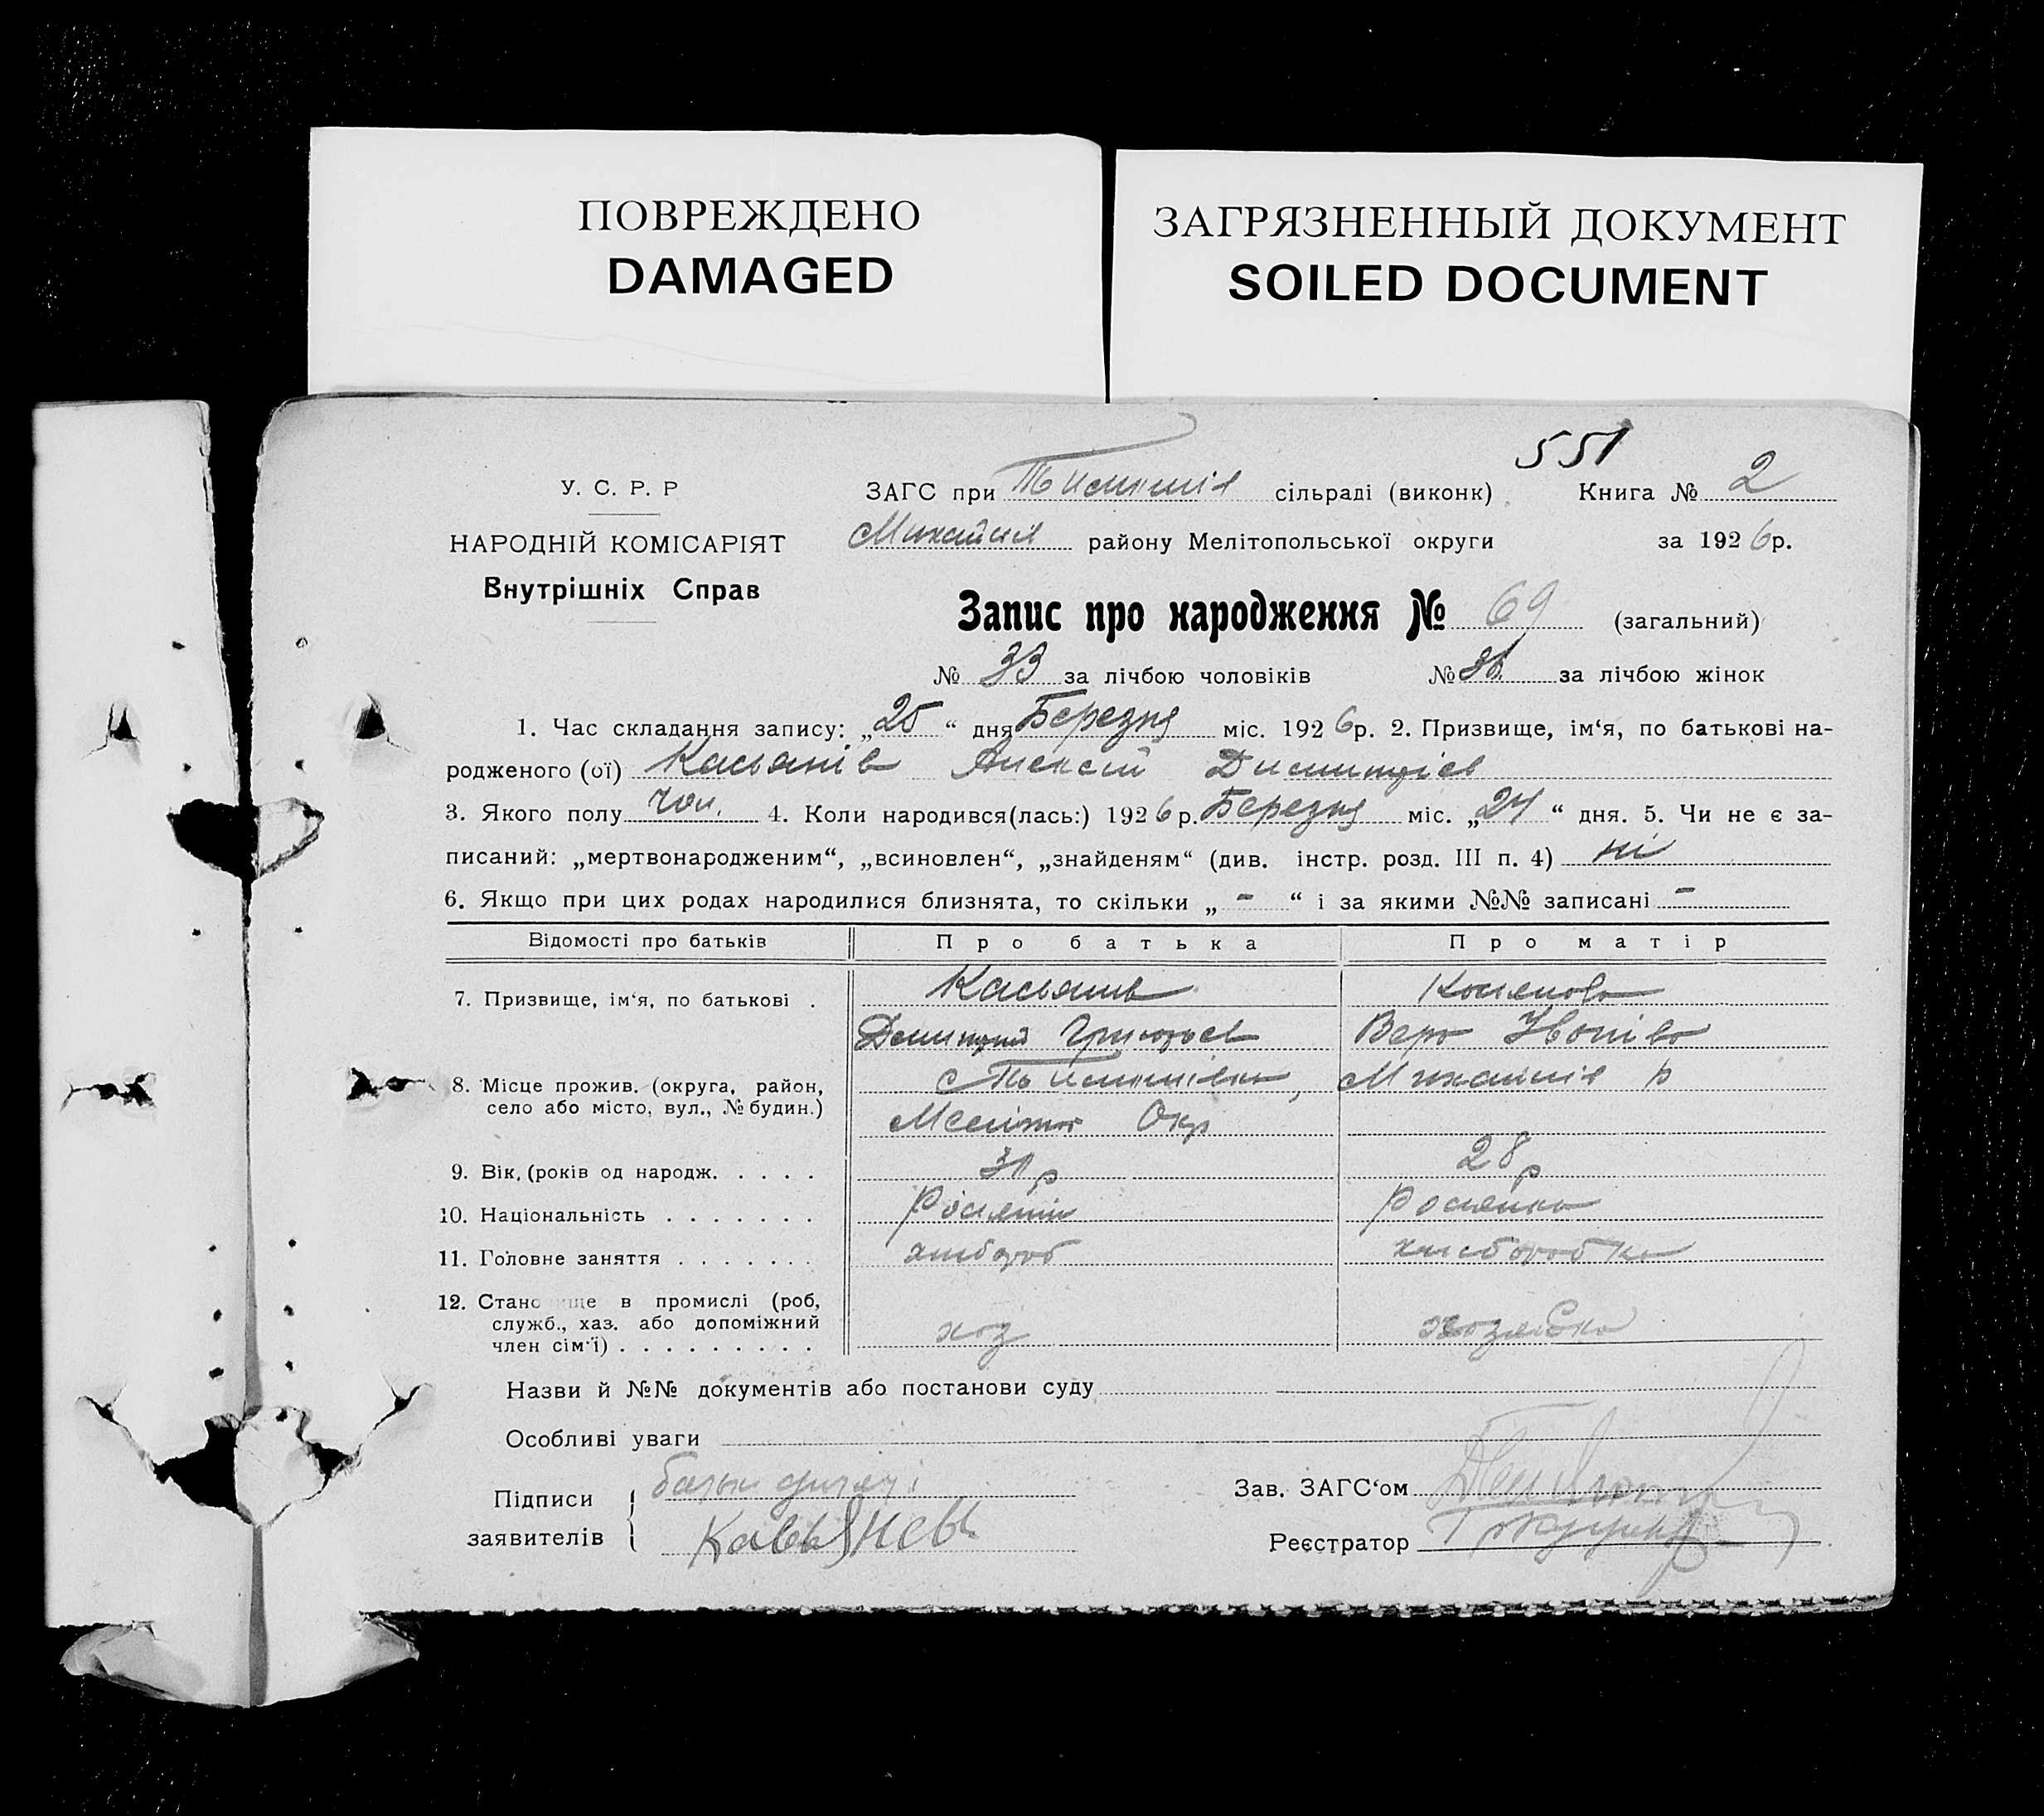 ПОВРЕЖДЕНО
DAMAGED
ЗАГРЯЗНЕННЫЙ ДОКУМЕНТ
SOILED DOCUMENT
551
У. С. Р. Р
НАРОДНІЙ КОМІСАРІЯТ
Внутрішніх Справ
ЗАГС при сільраді (виконк) Книга № 2
Михайлів району Мелітопольської округи за 1926 р.
Запис про народження № 69 (загальний)
№ 33 за лічбою чоловіків № за лічбою жінок
1. Час складання запису: „25“ дня Березня міс. 1926 р. 2. Призвище, ім‘я, по батькові на-
родженого (ої) Касьянів Алексій Димитріев
3. Якого полу чол. 4. Коли народився(лась:) 1926 р. Березня міс. „24“ дня. 5. Чи не є за-
писаний: „мертвонародженим“, „всиновлен“, „знайденям“ (див. інстр. розд. III п. 4) ні
6. Якщо при цих родах народилися близнята, то скільки „ - “ і за якими №№ записані -
Відомості про батьків Про батька Про матір
7. Призвище, ім‘я, по батькові . Касьянів Касянова
Григорьев Вера
8. Місце прожив. (округа, район, Михайлів р
село або місто, вул., № будин.) Меліт Окр
9. Вік, (років од народж. . . . . 31 р 28 р
10. Національність . . . . . . . Росіянин Росіянка
11. Головне заняття . . . . . . . хлібороб хліборобка
12. Становище в промислі (роб,
служб., хаз. або допоміжний хоз хозяйка
член сім‘ї) . . . . . . . . .
Назви й №№ документів або постанови суду
Особливі уваги
Підписи батько
заявителів
Зав. ЗАГС‘ом
Реєстратор